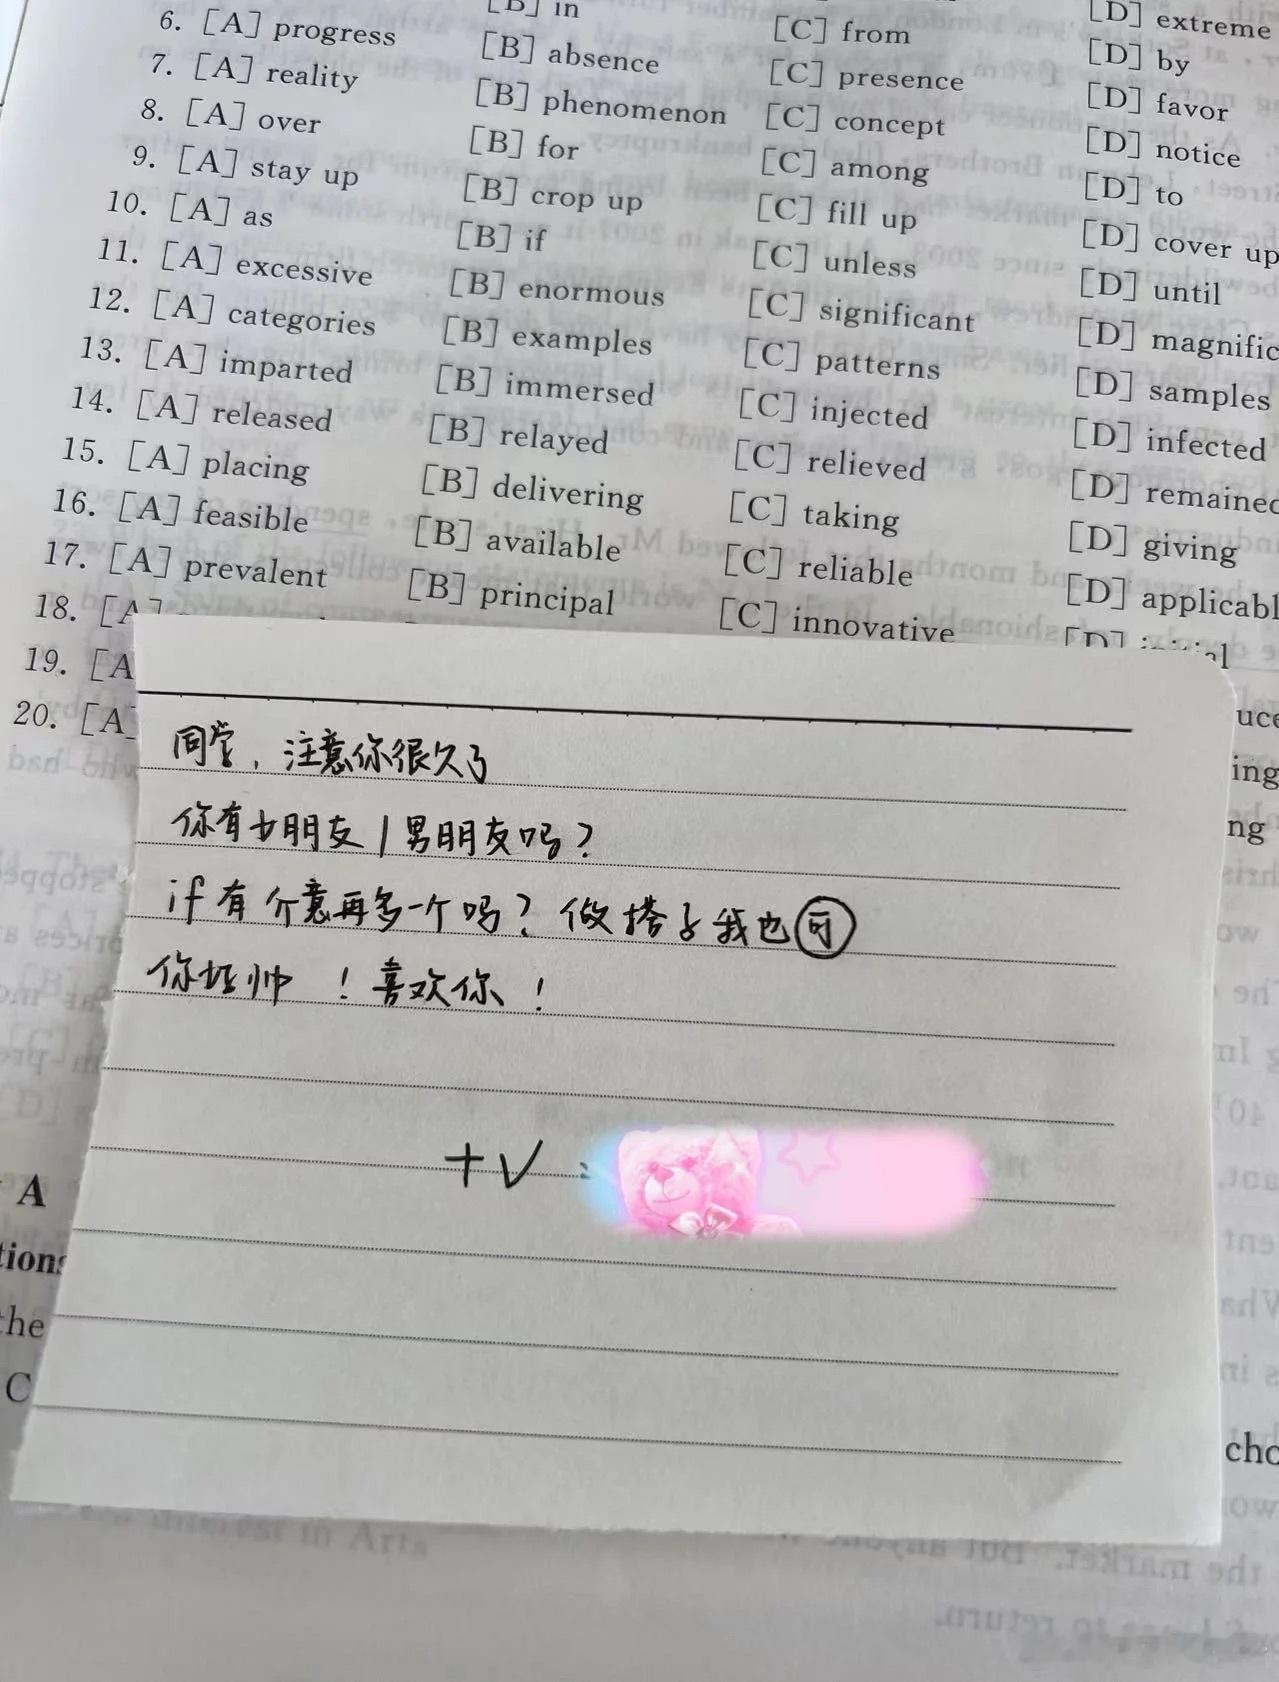 [B] in
[D] extreme
6. [A] progress [B] absence [C] from [D] by
7. [A] reality [B] phenomenon [C] presence [D] favor
8. [A] over [B] for [C] concept [D] notice
9. [A] stay up [B] crop up [C] among [D] to
10. [A] as [B] if [C] fill up [D] cover up
11. [A] excessive [B] enormous [C] unless [D] until
12. [A] categories [B] examples [C] significant
13. [A] imparted [B] immersed [C] patterns [D] samples
14. [A] released [B] relayed [C] injected [D] infected
15. [A] placing [B] delivering [C] relieved [D] remained
16. [A] feasible [B] available [C] taking [D] giving
17. [A] prevalent [B] principal [C] reliable
18. [A] [C] innovative [D] initial
19. [A
20. [A]
同学,注意你很久了
你有女朋友/男朋友吗?
if有 介意再多一个吗? 做搭子我也可
你挺帅 !喜欢你!
+V:
A
the
C
the market. But
to return.